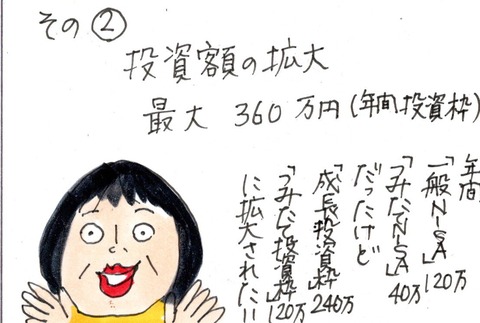 その②
投資額の拡大
最大 360万円(年間投資枠)
年間
「一般NISA」120万
「つみたてNISA」40万
だったけど
「成長投資枠」240万
「つみたて投資枠」120万
に拡大された!!